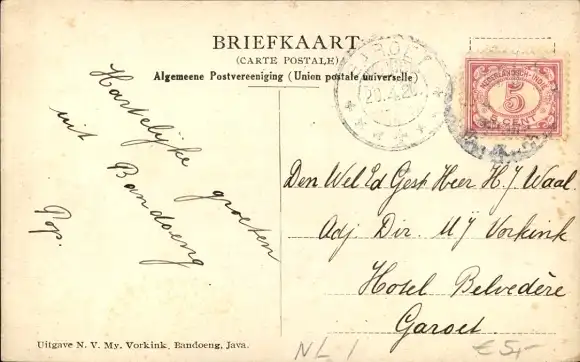 BRIEFKAART
(CARTE POSTALE)
Algemeene Postvereeniging (Union postale universelle)
NEDERLANDSCH-INDIË
5
5 CENT
Hartelijke groeten
uit Bandoeng
Pop.
Den Wel Ed Gest. Heer H. J. Waal
Adj. Dir. MY Vorkink
Hotel Belvedère
Garoet.
Uitgave N. V. My. Vorkink, Bandoeng, Java.
NL 1
€5,-